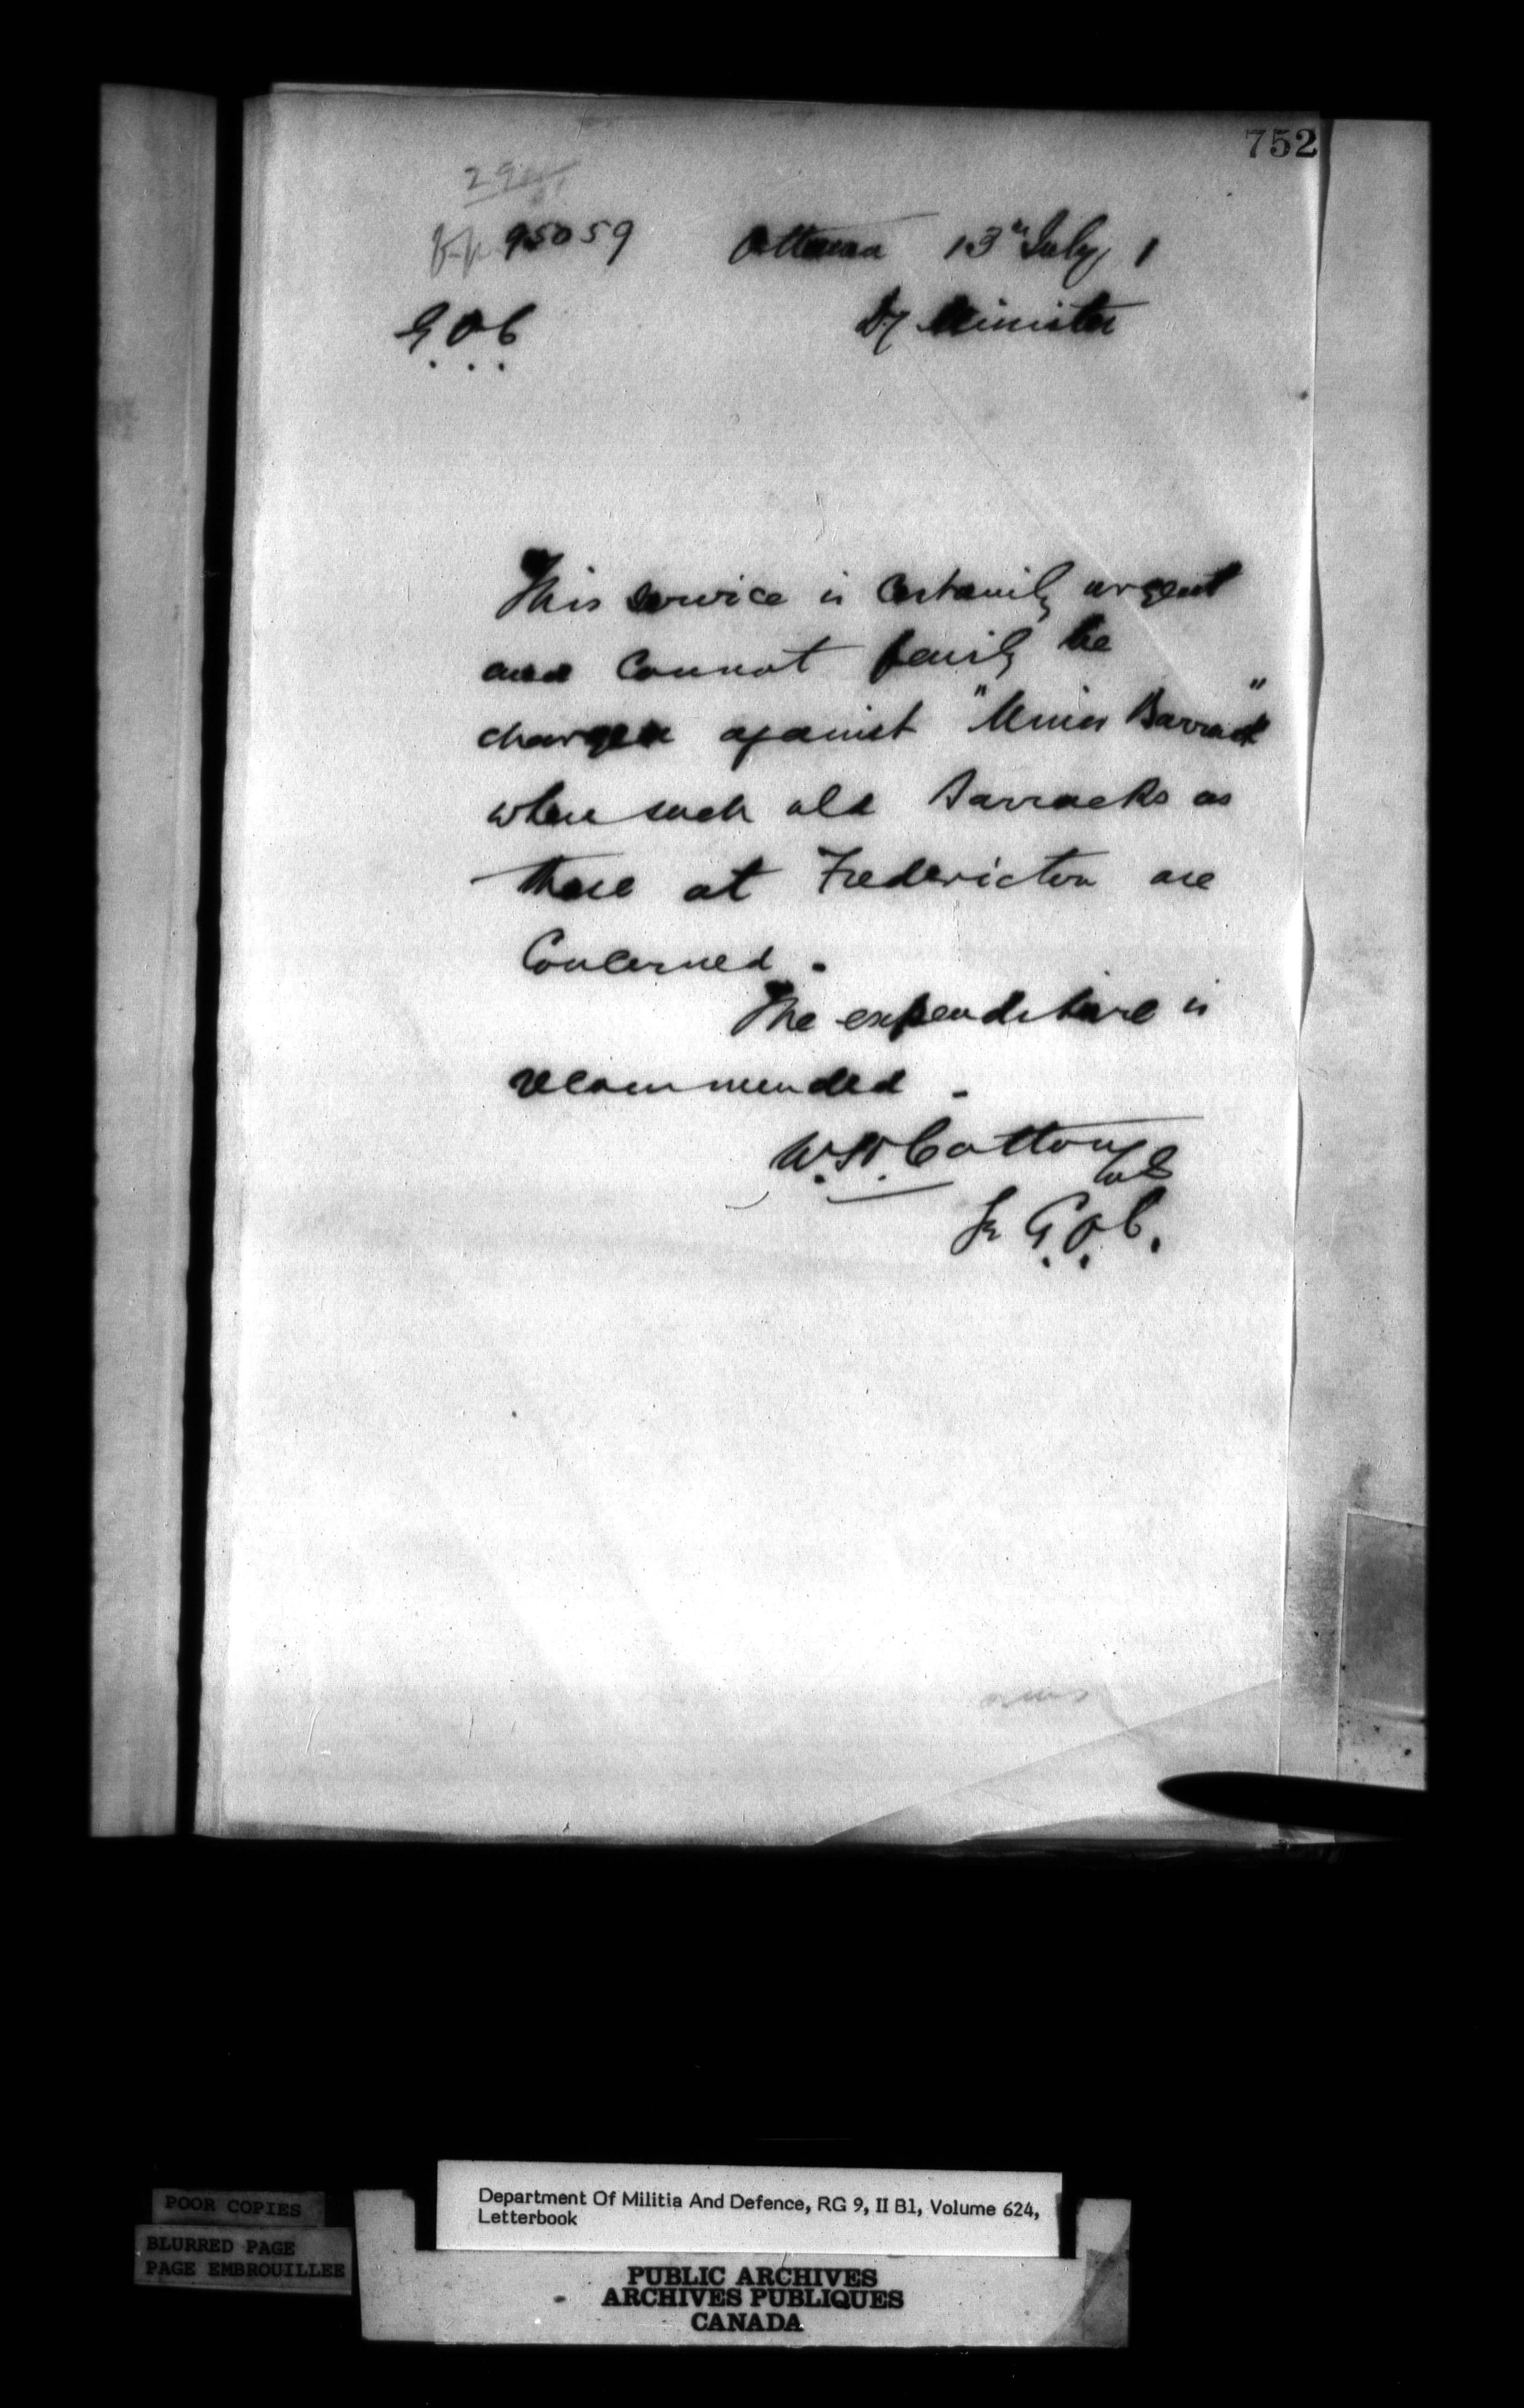 752
95059 Ottawa 13th July 1
G.O.C Dy Minister
This service is certainly urgent
and cannot fairly be
charged against "Minor Barrack"
when such old Barracks as
those at Fredericton are
Concerned.
The expenditure is
recommended -
W.H. Cotton Col
fr G.O.C.
POOR COPIES
BLURRED PAGE
PAGE EMBROUILLEE
Department Of Militia And Defence, RG 9, II B1, Volume 624,
Letterbook
PUBLIC ARCHIVES
ARCHIVES PUBLIQUES
CANADA